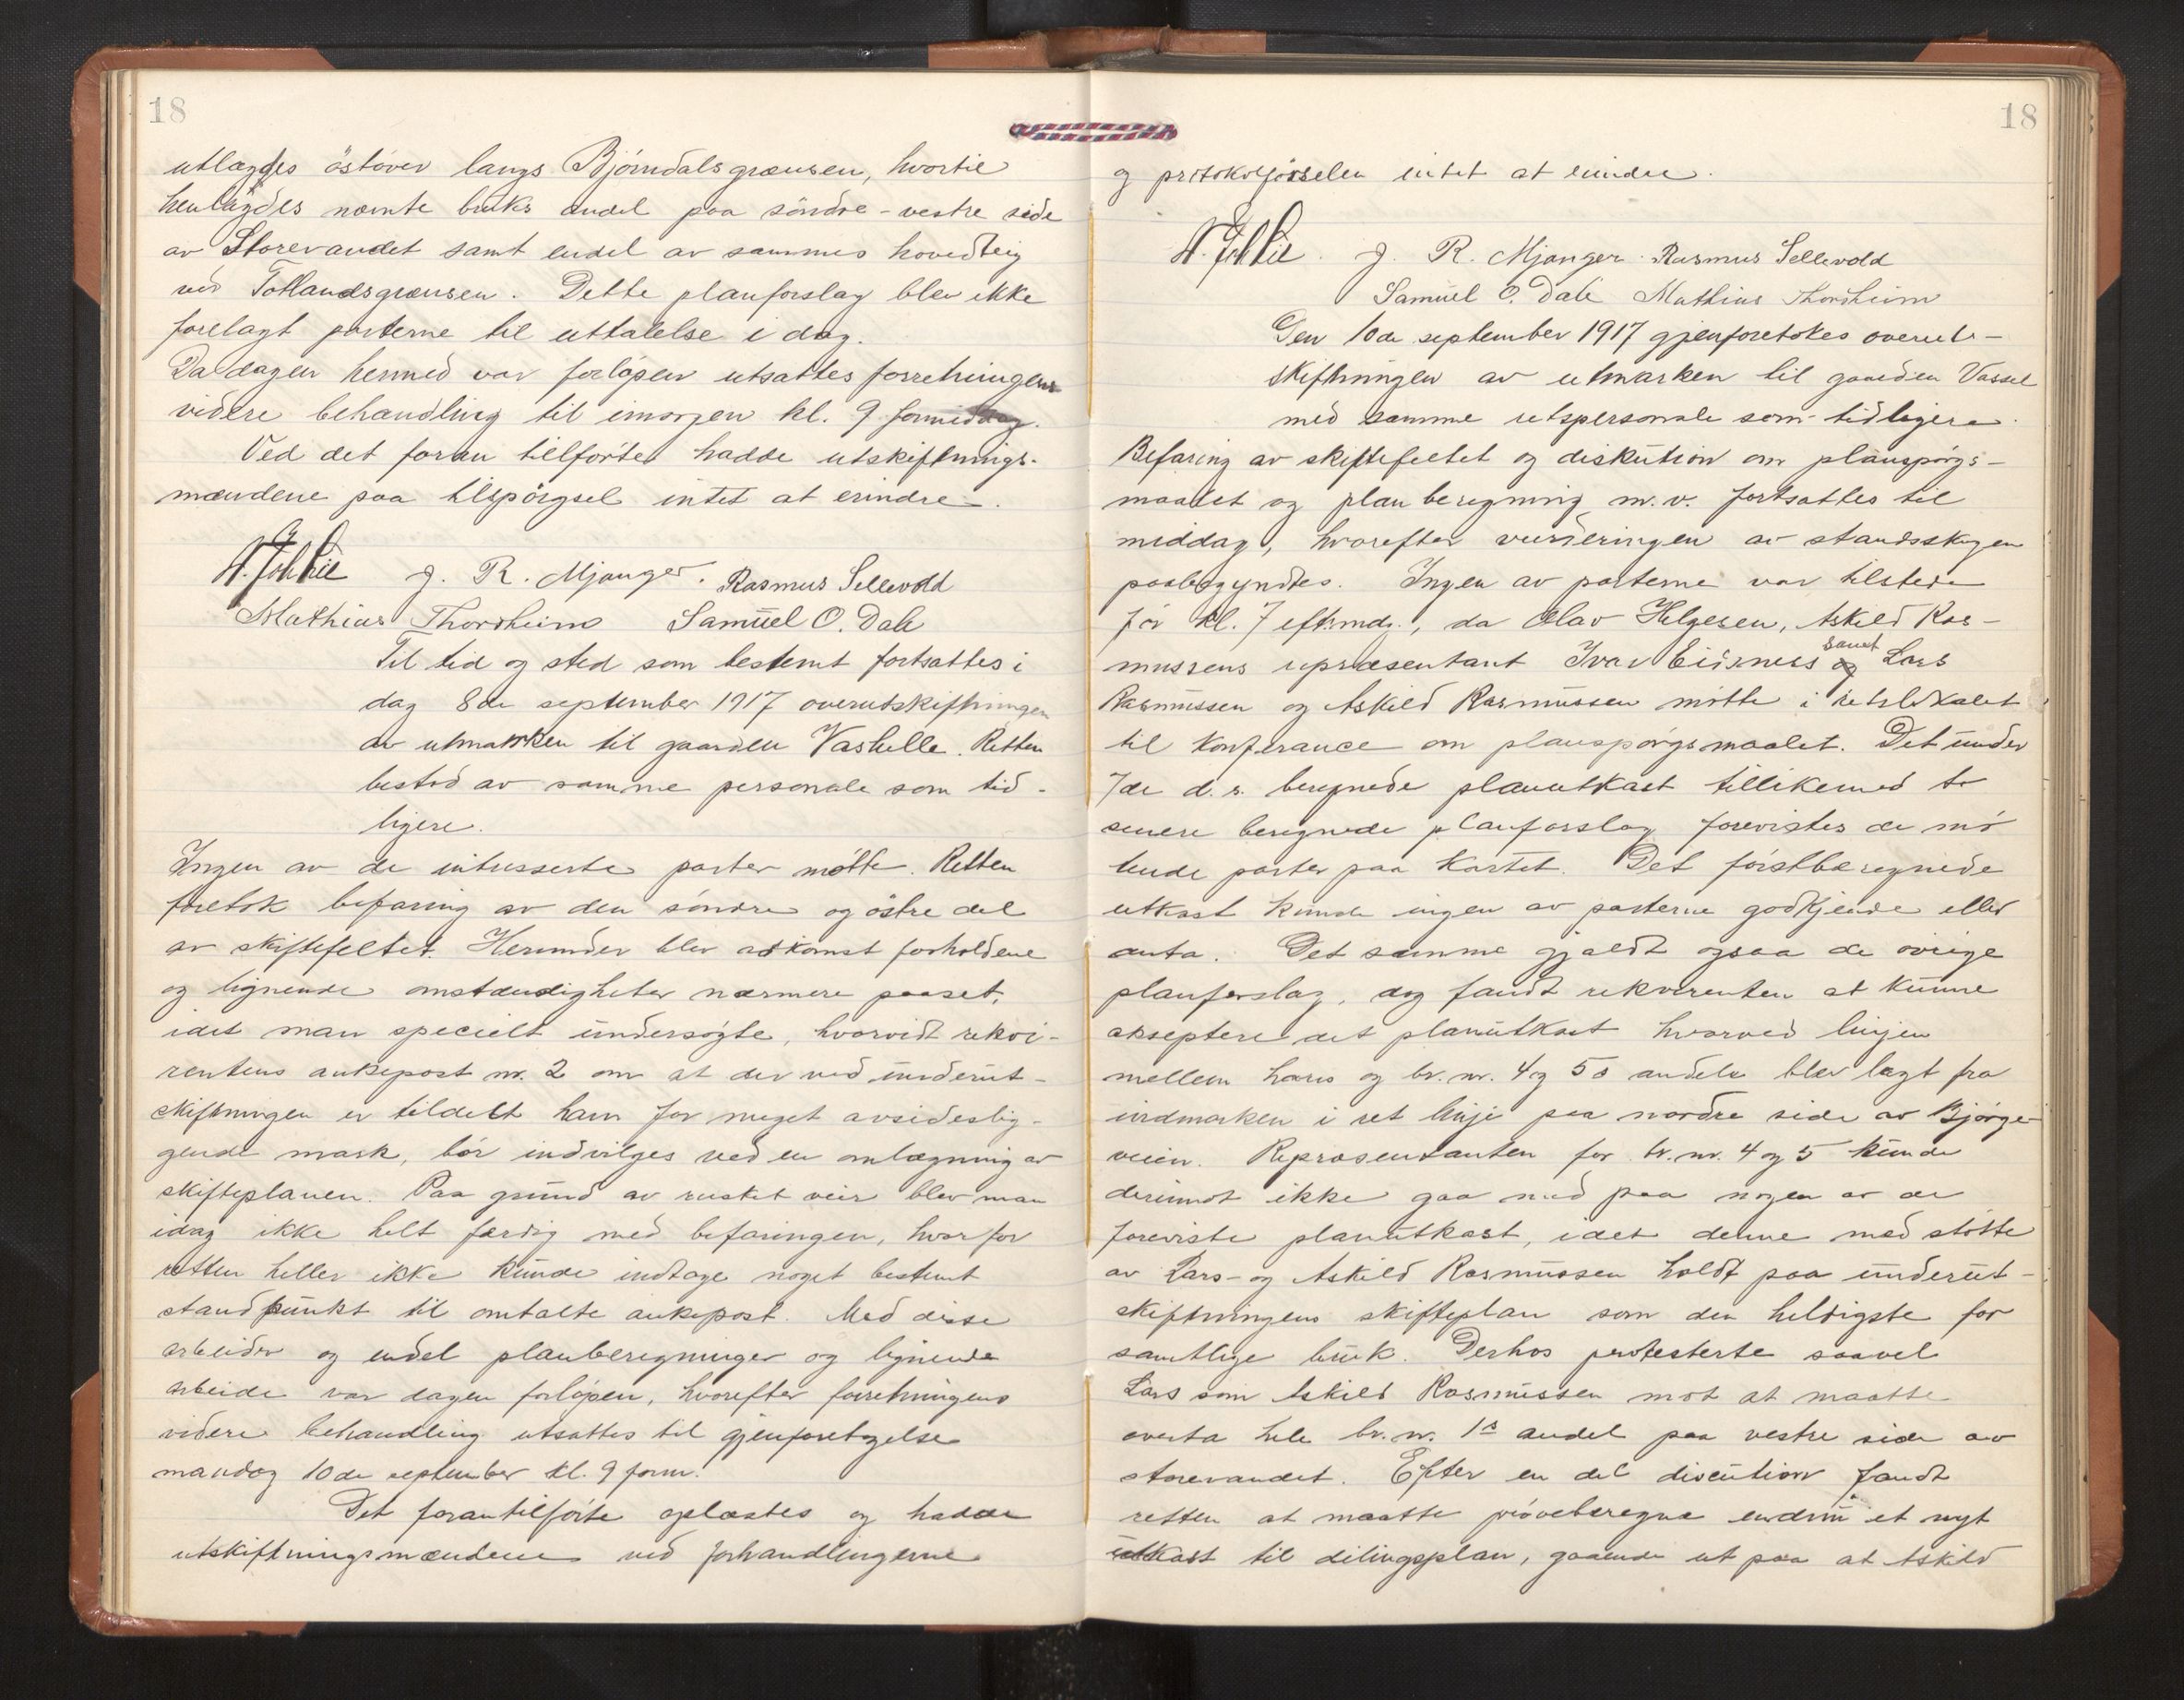 18
utlægges östover langs Bjørndalsgrænsen, hvortil
henlagdes nævnte bruks andel paa söndre-vestre side
av Storevandet samt endel av sammes hovedteig
ved Totlandsgrænsen. Dette planforslag blev ikke
forelagt parterne til uttalelse i dag.
Da dagen hermed var forløpen utsattes forretningens
videre behandling til imorgen kl. 9 formiddag.
Ved det foran tilførte hadde utskiftnings-
mændene paa tilspörgsel intet at erindre.
J. R. Mjanger. Rasmus Sellevold
Mathias Thorsheim Samuel O. Dale
Til tid og sted som bestemt fortsattes i
dag 8de september 1917 overutskiftningen
av utmarken til gaarden Vaskelle. Retten
bestod av samme personale som tid-
ligere.
Ingen av de intresserte parter mötte. Retten
foretok befaring av den söndre og östre del
av skiftefeltet. Herunder blev adkomst forholdene
og lignende omstændigheter nærmere paaset,
idet man specielt undersøgte, hvorvidt rekvi-
rentens ankepost nr. 2 om at der ved underut-
skiftningen er tildelt ham for meget avsideslig-
gende mark, bör indvilges ved en omlægning av
skifteplanen. Paa grund av rusket veir blev man
idag ikke helt færdig med befaringen, hvorfor
retten heller ikke kunde indtage noget bestemt
standpunkt til omtalte ankepost. Med disse
arbeider og endel planberegninger og lignende
arbeide var dagen forløpen, hvorefter forretningens
videre behandling utsattes til gjenforetagelse
mandag 10de september kl. 9 form.
Det forantilförte oplæstes og hadde
utskiftningsmændene ved forhandlingerne
18
og protokolförselen intet at erindre.
J. R. Mjanger. Rasmus Sellevold
Samuel O. Dale Mathias Thorsheim.
Den 10de september 1917 gjenforetokes overut-
skiftningen av utmarken til gaarden Vassel
med samme retspersonale som tidligere.
Befaring av skiftefeltet og diskution om planspörgs-
maalet og planberegning m.v. fortsattes til
middag, hvorefter vurderingen av standsskogen
paabegyndtes. Ingen av parterne var tilstede
för kl. 7 eftmdg., da Olav Helgesen, Askild Ras-
mussens repræsentant Ivar Eidsness samt Lars
Rasmussen og Askild Rasmussen mötte i retslokalet
til konferance om planspörgsmaalet. Det under
7de d. s. beregnede planutkast tillikemed to
senere beregnede planforslag forevistes de mö
tende parter paa kartet. Det förstberegnede
utkast kunde ingen av parterne godkjende eller
anta. Det samme gjaldt ogsaa de övrige
planforslag, dog fandt rekvirenten at kunne
akseptere det planutkast hvorved linjen
mellem hans og br. nr. 4 og 5s andele blev lagt fra
indmarken i ret linje paa nordre side av Bjørge-
veien. Repræsentanten for br. nr. 4 og 5 kunde
derimot ikke gaa med paa nogen av de
foreviste planutkast, idet denne med stötte
av Lars- og Askild Rasmussen holdt paa underut-
skiftningens skifteplan som den heldigste for
samtlige bruk. Derhos protesterte saavel
Lars som Askild Rasmussen mot at maatte
overta hele br. nr. 1s andel paa vestre side av
storevandet. Efter en del discution fandt
retten at maatte pröveberegne endnu et nyt
utkast til delingsplan, gaaende ut paa at Askild